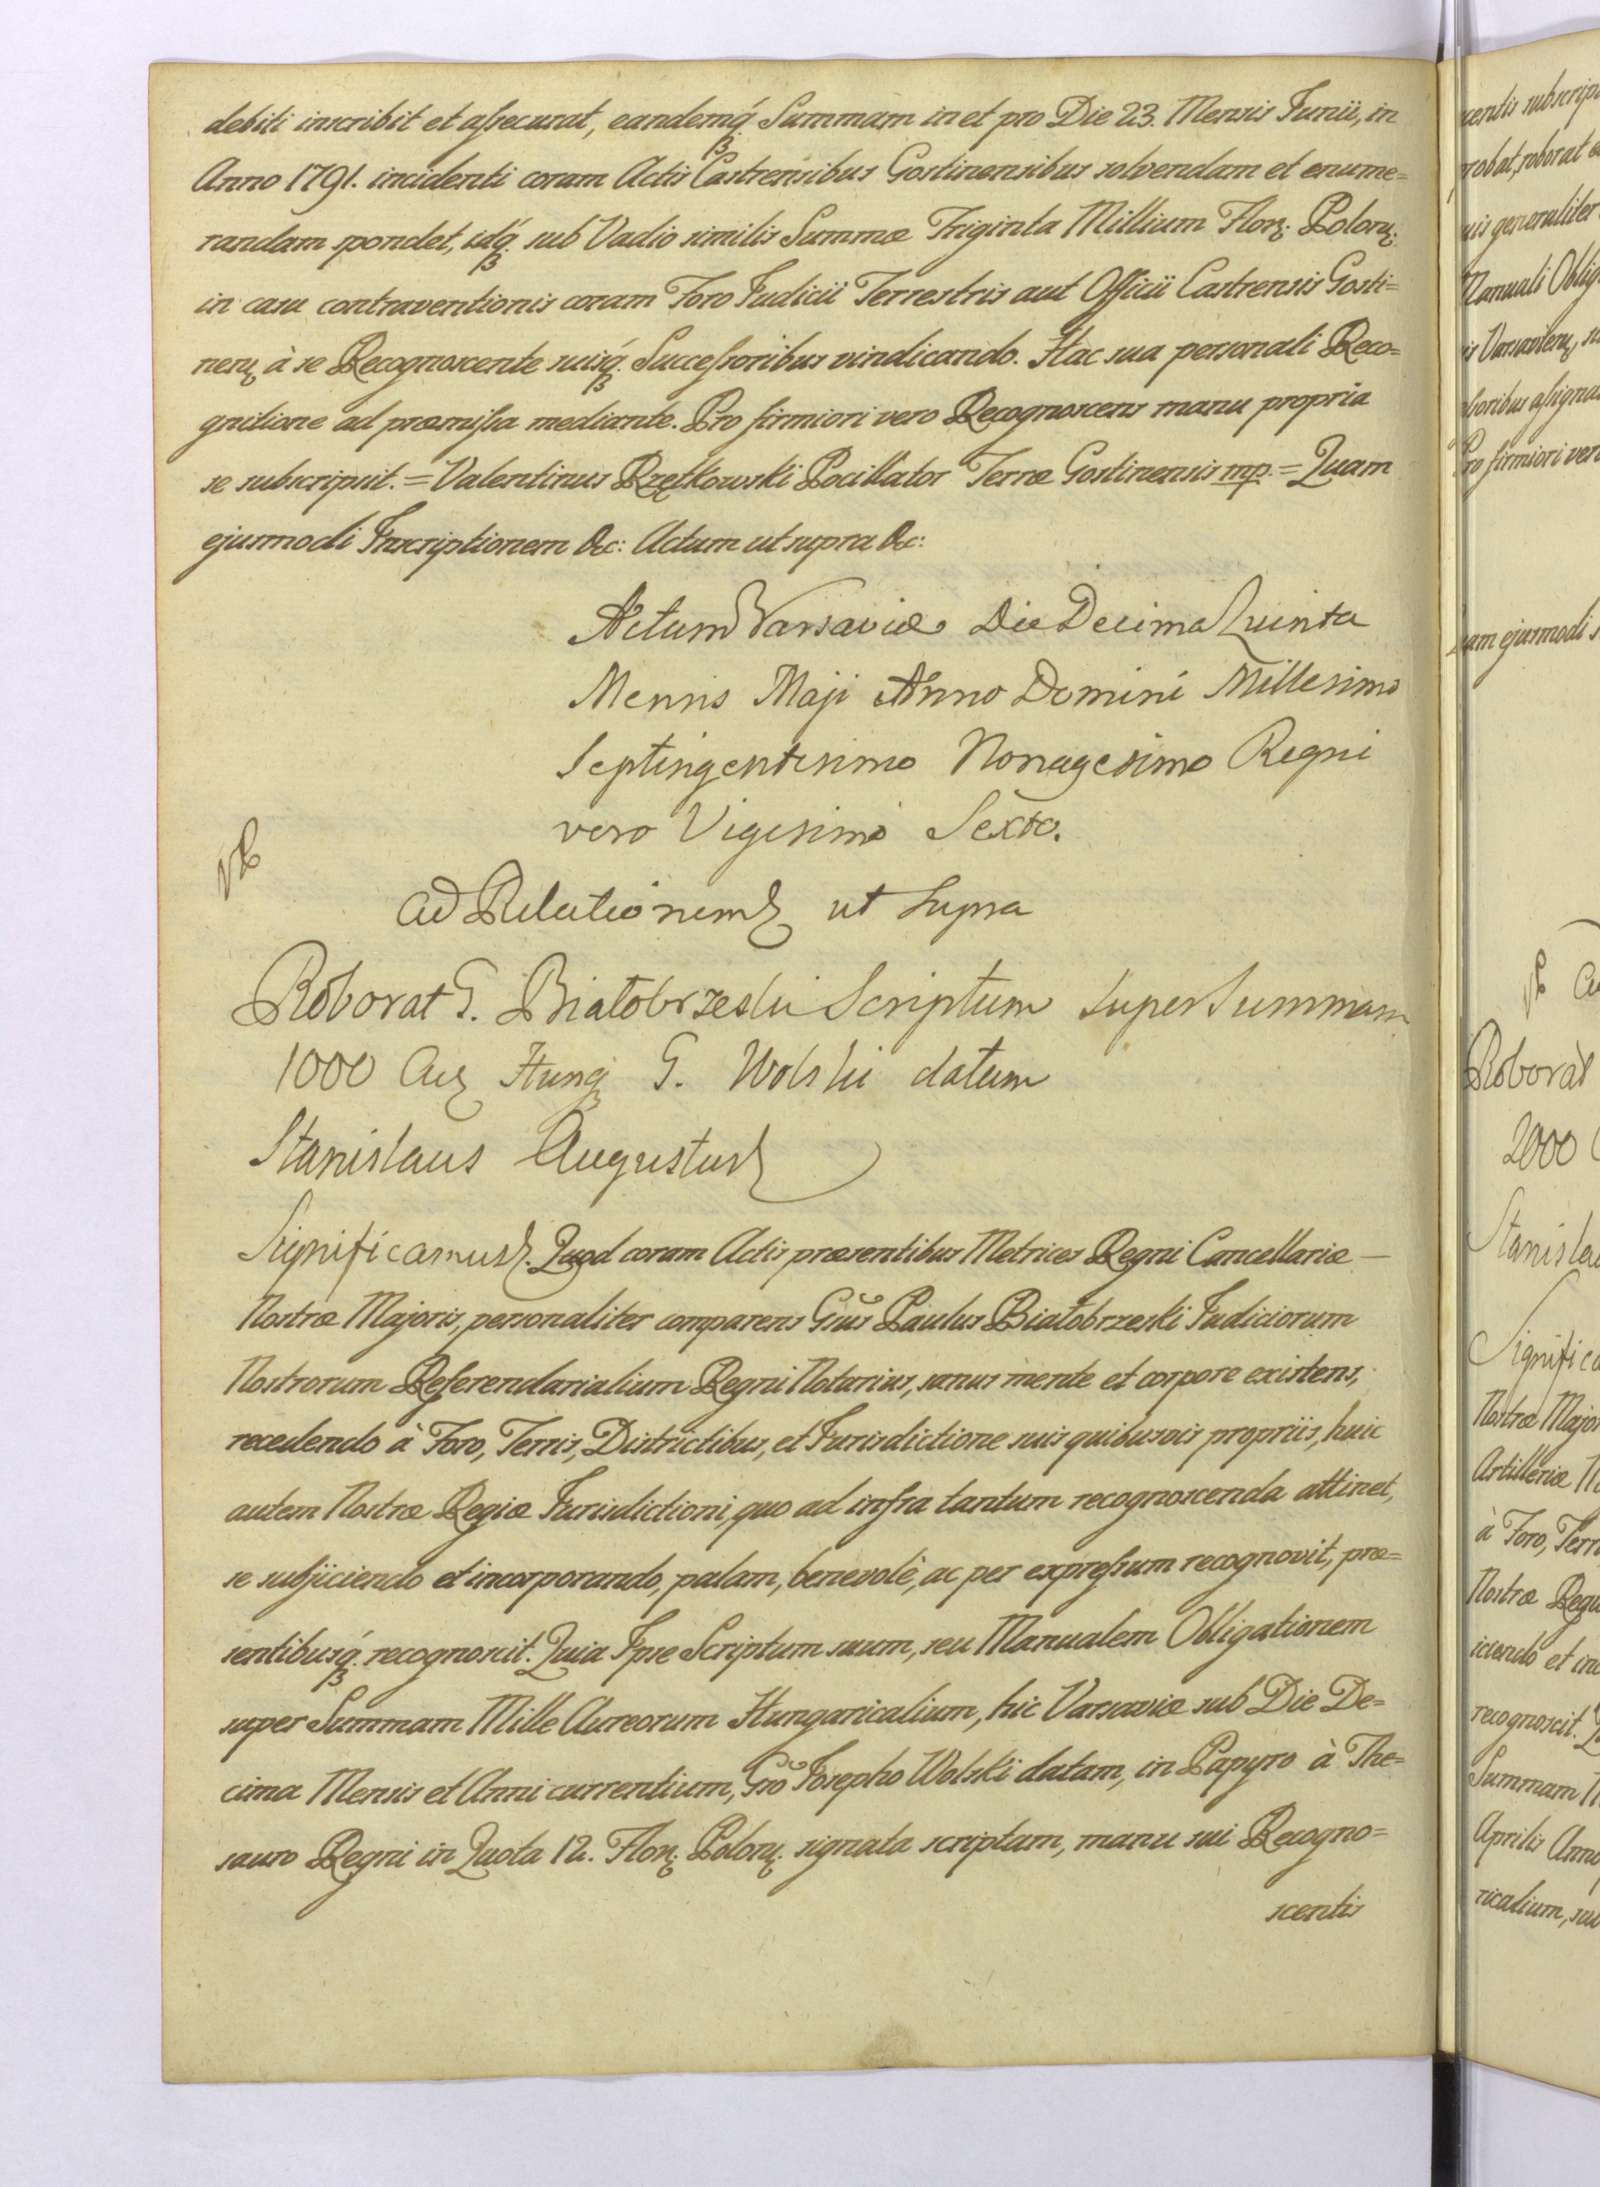 debiti inscribit et assecurat, eandemq́. Summam in et pro Die 23. Mensis Junii, in
Anno 1791. incidenti coram Actis Castrensibus Gostinensibus solvendam et enume=
randam spondet, idq́. sub Vadio similis Summæ Triginta Millium Flor. Polor.
in casu contraventionis coram Foro Judicii Terrestris aut Officii Castrensis Gosti=
nen. à se Recognoscente suisq́. Successoribus vindicando. Hac sua personali Reco=
gnitione ad præmissa mediante. Pro firmiori vero Recognoscens manu propria
se subscripsit. = Valentinus Rzętkowski Pocillator Terræ Gostinensis mp. = Quam
ejusmodi Inscriptionem &c: Actum ut supra &c:
Actum Varsaviæ Die Decima Quinta
Mensis Maji Anno Domini Millesimo
Septingentesimo Nonagesimo Regni
vero Vigesimo Sexto.
ad Relationem ut supra
Roborat G. Białobrzeski Scriptum super Summam
1000 Aur Hung G. Wolski datum
Stanislaus Augustus
Significamus. Quod coram Actis præsentibus Metrices Regni Cancellariæ —
Nostræ Majoris, personaliter comparens Gsus Paulus Białobrzeski Judiciorum
Nostrorum Referendarialium Regni Notarius, sanus mente et corpore existens,
recedendo à Foro, Terris, Districtibus, et Jurisdictione suis quibusvis propriis, huic
autem Nostræ Regiæ Jurisdictioni, quo ad infra tantum recognoscenda attinet,
se subjiciendo et incorporando, palam, benevolè, ac per expressum recognovit, præ=
sentibusq́. recognoscit. Quia Ipse Scriptum suum, seu Manualem Obligationem
super Summam Mille Aureorum Hungaricalium, hic Varsaviæ sub Die De=
cima Mensis et Anni currentium, Gso Josepho Wolski datam, in Papyro à The=
sauro Regni in Quota 12. Flor. Polor. signata scriptam, manu sui Recogno=
scentis